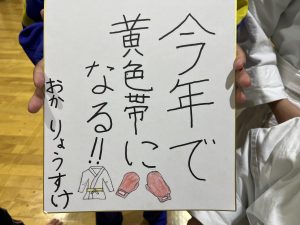 今年で
黄色帯に
なる!!
おかりょうすけ